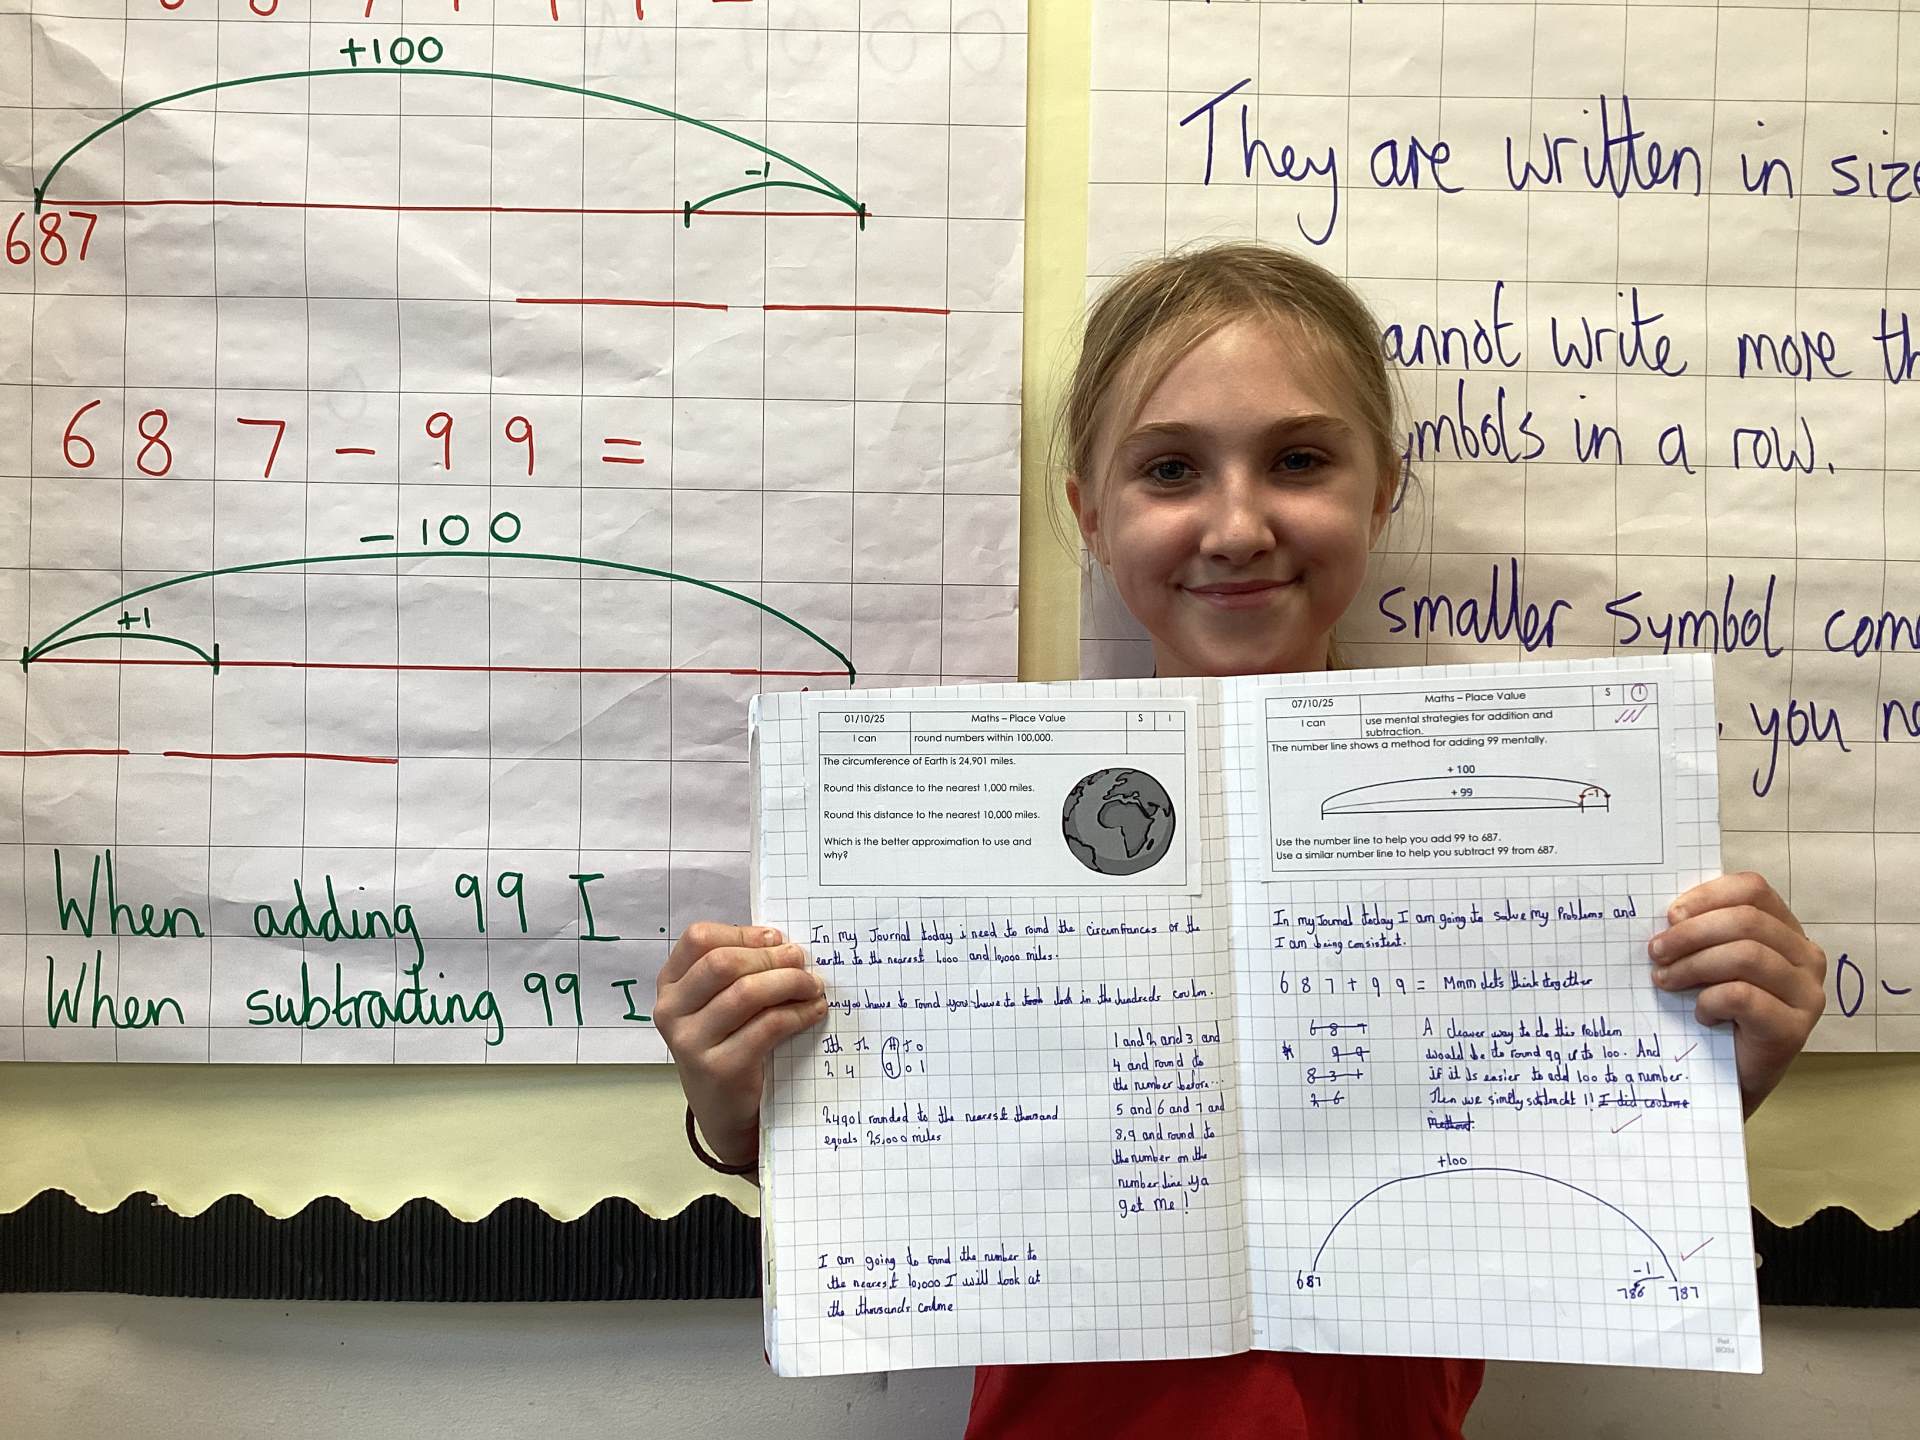 +100
-1
687
687-99=
-100
+1
When adding 99 I
When subtracting 99 I
They are written in size
annot write more th
ymbols in a row.
smaller symbol com
, you
0-
01/10/25 Maths – Place Value S I
I can round numbers within 100,000.
The circumference of Earth is 24,901 miles.
Round this distance to the nearest 1,000 miles.
Round this distance to the nearest 10,000 miles.
Which is the better approximation to use and
why?
In my Journal today i need to round the circumfrances of the
earth to the nearest 1,000 and 10,000 miles.
you have to round you have to look in the hundreds
Tth Th H T O
2 4 9 0 1
24901 rounded to the nearest thousand
equals 25,000 miles
1 and 2 and 3 and
4 and round to
the number before...
5 and 6 and 7 and
8,9 and round to
the number on the
number line ya
get me!
I am going to round the number to
the nearest 10,000 I will look at
the thousands coulme
07/10/25 Maths – Place Value S I
I can use mental strategies for addition and
subtraction.
The number line shows a method for adding 99 mentally.
+ 100
+ 99
-1
Use the number line to help you add 99 to 687.
Use a similar number line to help you subtract 99 from 687.
In my Journal today I am going to solve my Problems and
I am being consistent.
687+99= Mmm lets think together
687
99
26
A cleaver way to do this Problem
would be to round 99 up to 100. And
if it is easier to add 100 to a number.
Then we simply subtract 1! I did
method.
+100
-1
687 786 787